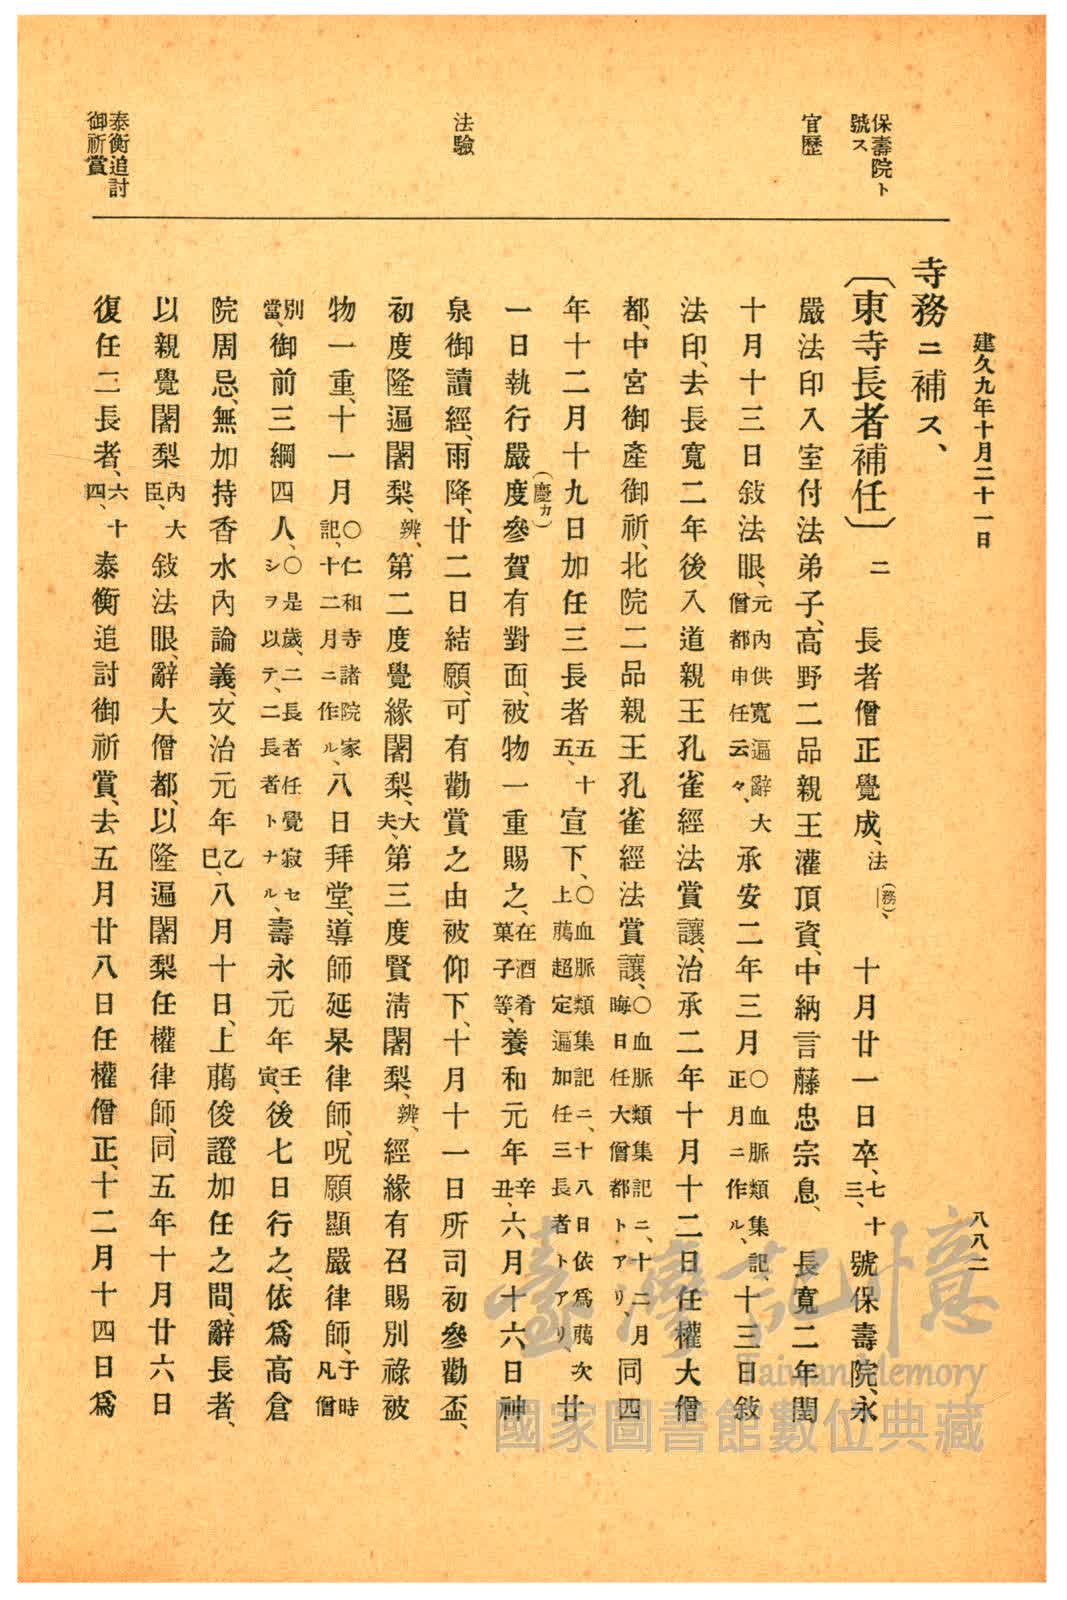 建久九年十月二十一日
八八二
保壽院ト
號ス
官歷
法驗
泰衡追討
御祈賞
寺務ニ補ス、
〔東寺長者補任〕二　長者僧正覺成、法(務)、　十月廿一日卒、七十三、號保壽院、永
嚴法印入室付法弟子、高野二品親王灌頂資、中納言藤忠宗息、　長寬二年閏
十月十三日敍法眼、元內供寬遍辭大僧都申任云々、承安二年三月〇血脈類集記、正月ニ作ル、十三日敍
法印、去長寬二年後入道親王孔雀經法賞讓、治承二年十月十二日任權大僧
都、中宮御產御祈、北院二品親王孔雀經法賞讓、〇血脈類集記ニ、十二月晦日任大僧都トアリ、同四
年十二月十九日加任三長者五十五、宣下、〇血脈類集記二、十八日依爲﨟次上﨟超定遍加任三長者トアリ、廿
一日執行嚴度(慶カ)參賀有對面、被物一重賜之、在酒肴菓子等、養和元年辛丑、六月十六日神
泉御讀經、雨降、廿二日結願、可有勸賞之由被仰下、十月十一日所司初參勸盃、
初度隆遍闍梨、辨、第二度覺緣闍梨、大夫、第三度賢淸闍梨、辨、經緣有召賜別祿被
物一重、十一月〇仁和寺諸院家記、十二月ニ作ル、八日拜堂、導師延杲律師、呪願顯嚴律師、于時凡僧
別當、御前三綱四人、〇是歲、二長者任覺寂セシヲ以テ、二長者トナル、壽永元年壬寅、後七日行之、依爲高倉
院周忌、無加持香水內論義、文治元年乙巳、八月十日、上﨟俊證加任之間、辭長者、
以親覺闍梨內大臣、敍法眼、辭大僧都、以隆遍闍梨任權律師、同五年十月廿六日
復任三長者、六十四、泰衡追討御祈賞、去五月廿八日任權僧正、十二月十四日爲
臺灣記憶
Taiwan Memory
國家圖書館數位典藏